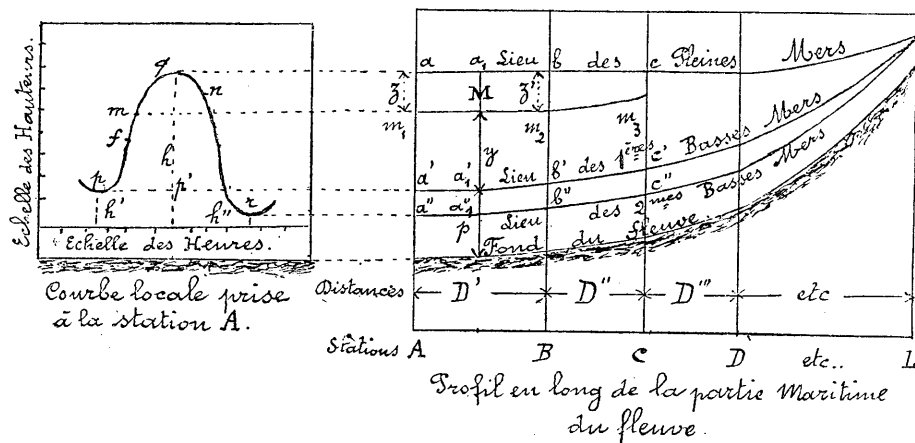 Echelle des Hauteurs.
q
n
m
f
h
p
p'
h'
h''
r
Echelle des Heures.
Courbe locale prise
à la station A.
a a₁ Lieu b des c Pleines Mers
z M z'
m₁ m₂ m₃
y
a' a'₁ Lieu b' des 1ères c' Basses Mers
a'' a''₁ Lieu b'' des 2mes c'' Basses Mers
p
Fond du fleuve
Distances D' D'' D''' etc
Stations A B C D etc.. L
Profil en long de la partie Maritime
du fleuve.